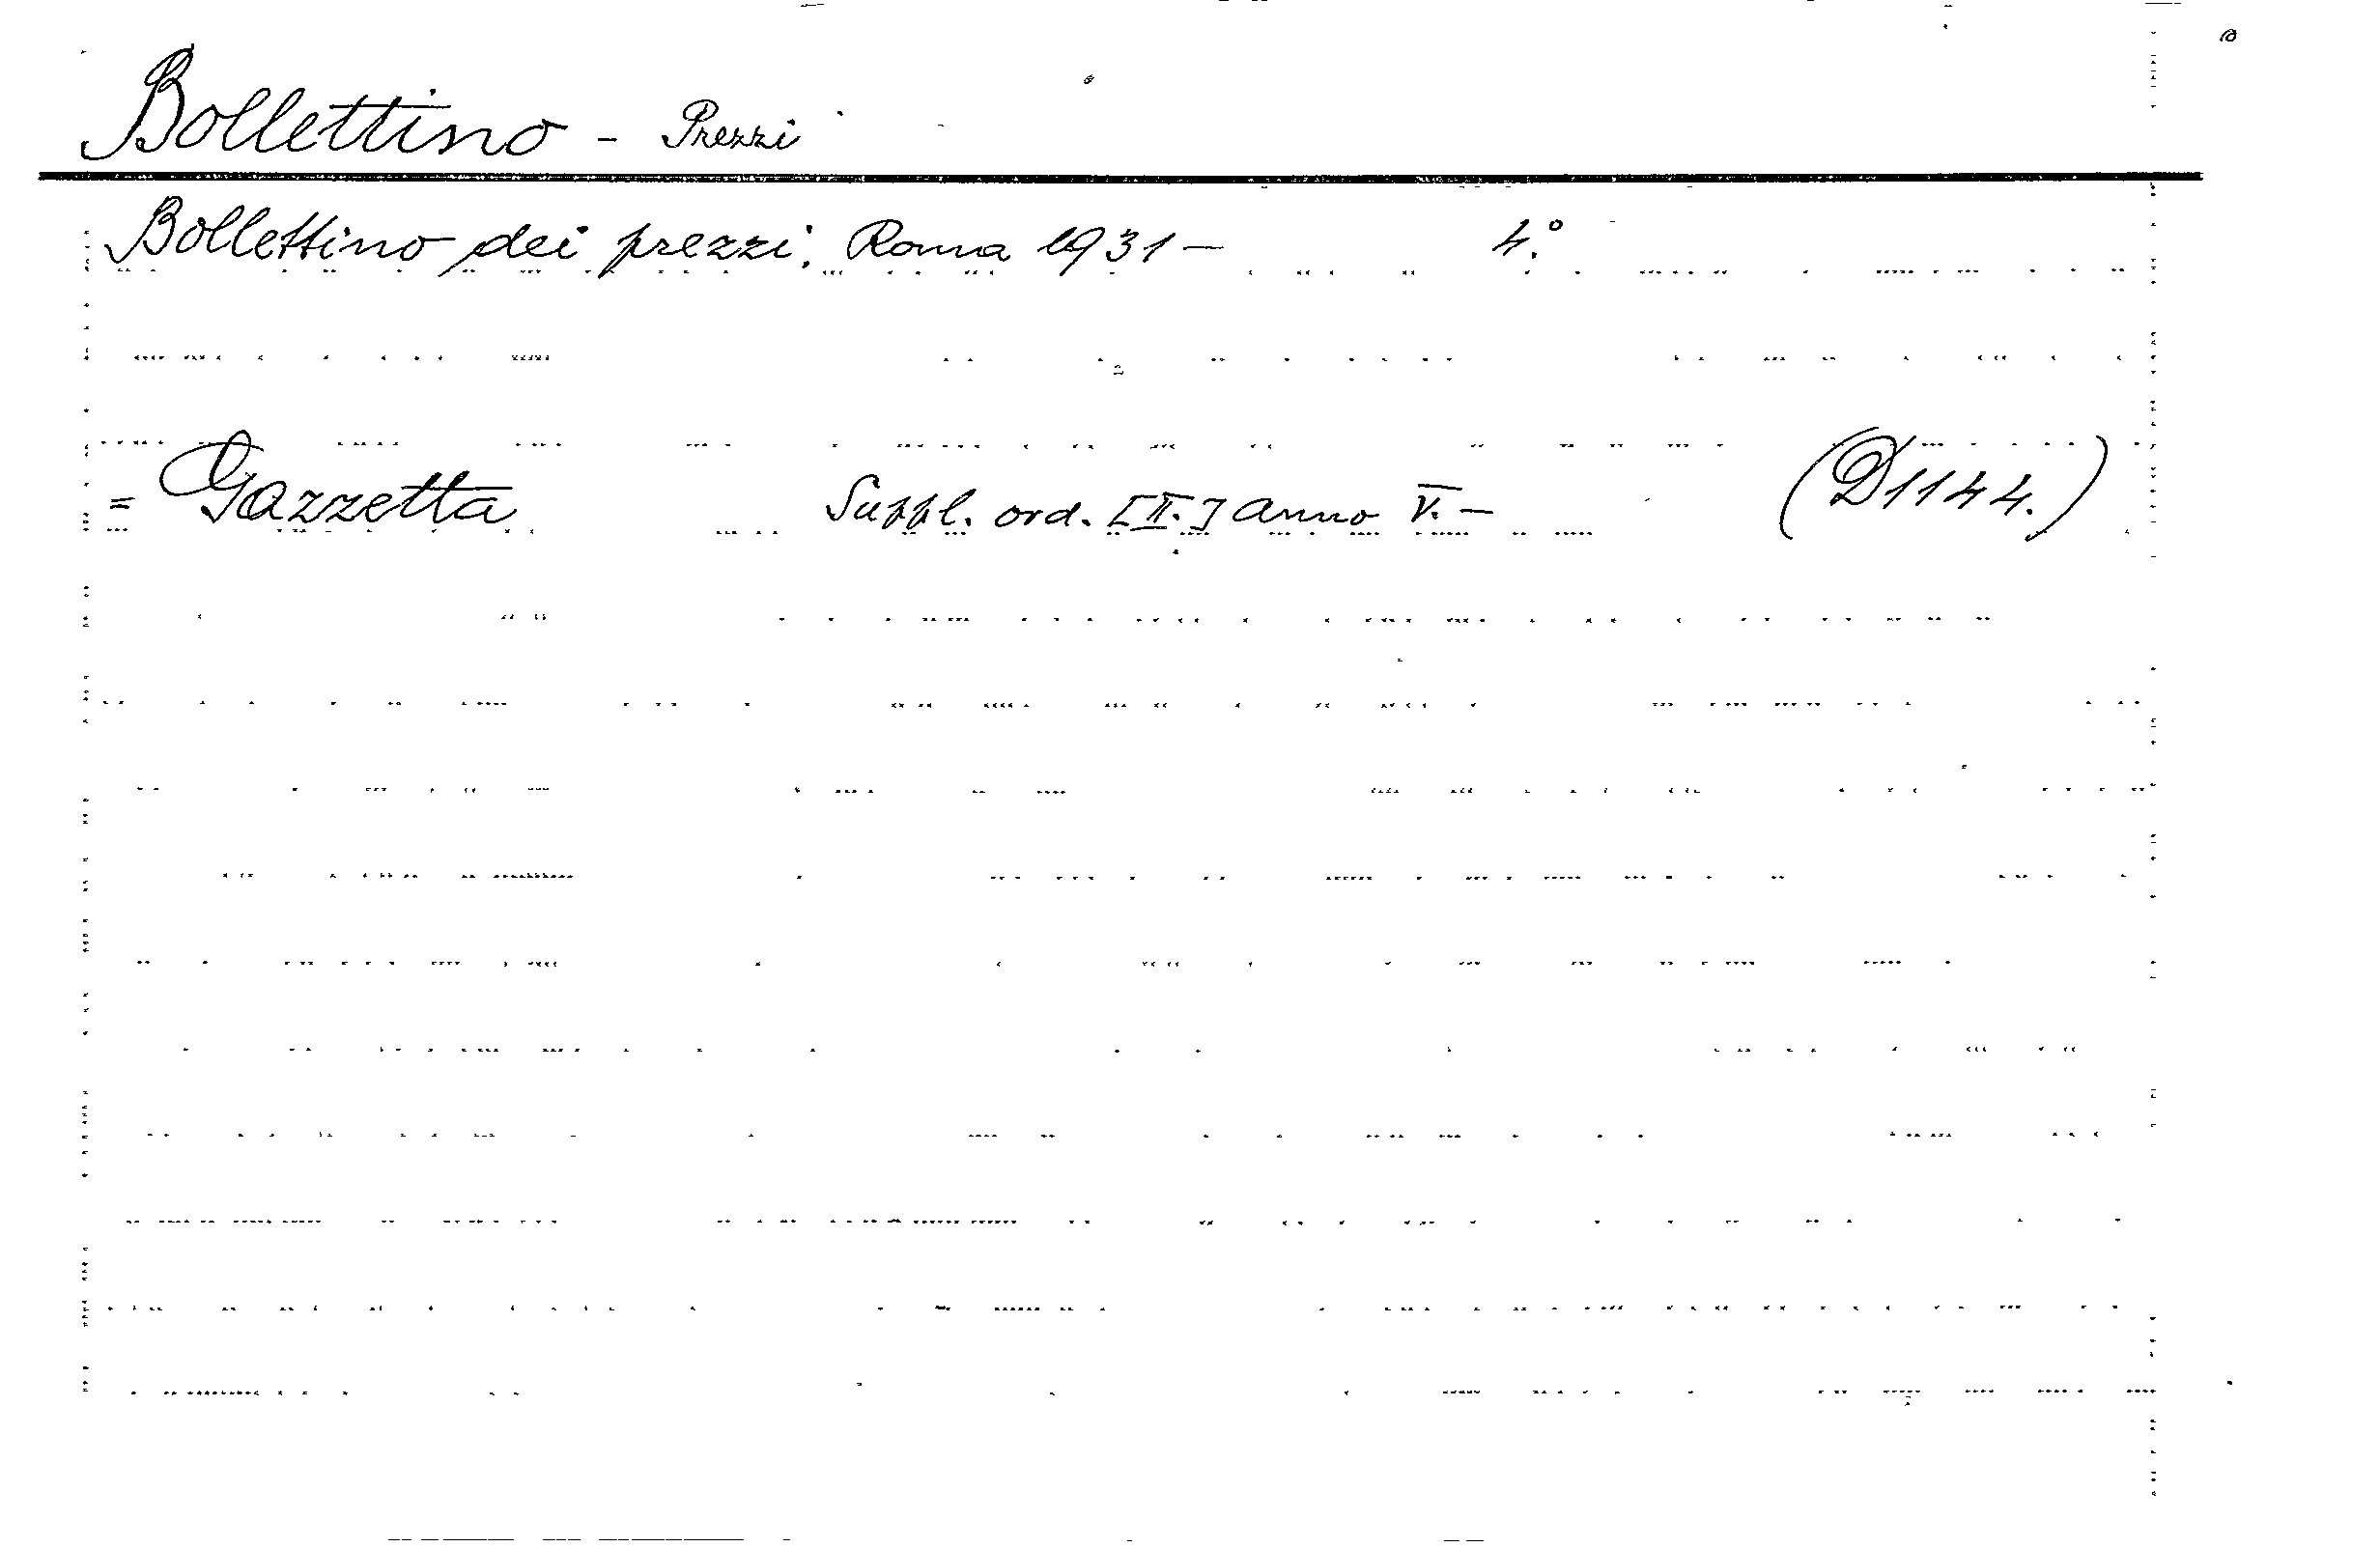 Bollettino - Prezzi
Bollettino dei prezzi. Roma 1931 — 4.°
= Gazzetta Suppl. ord. [II.] anno V. — (D1144.)